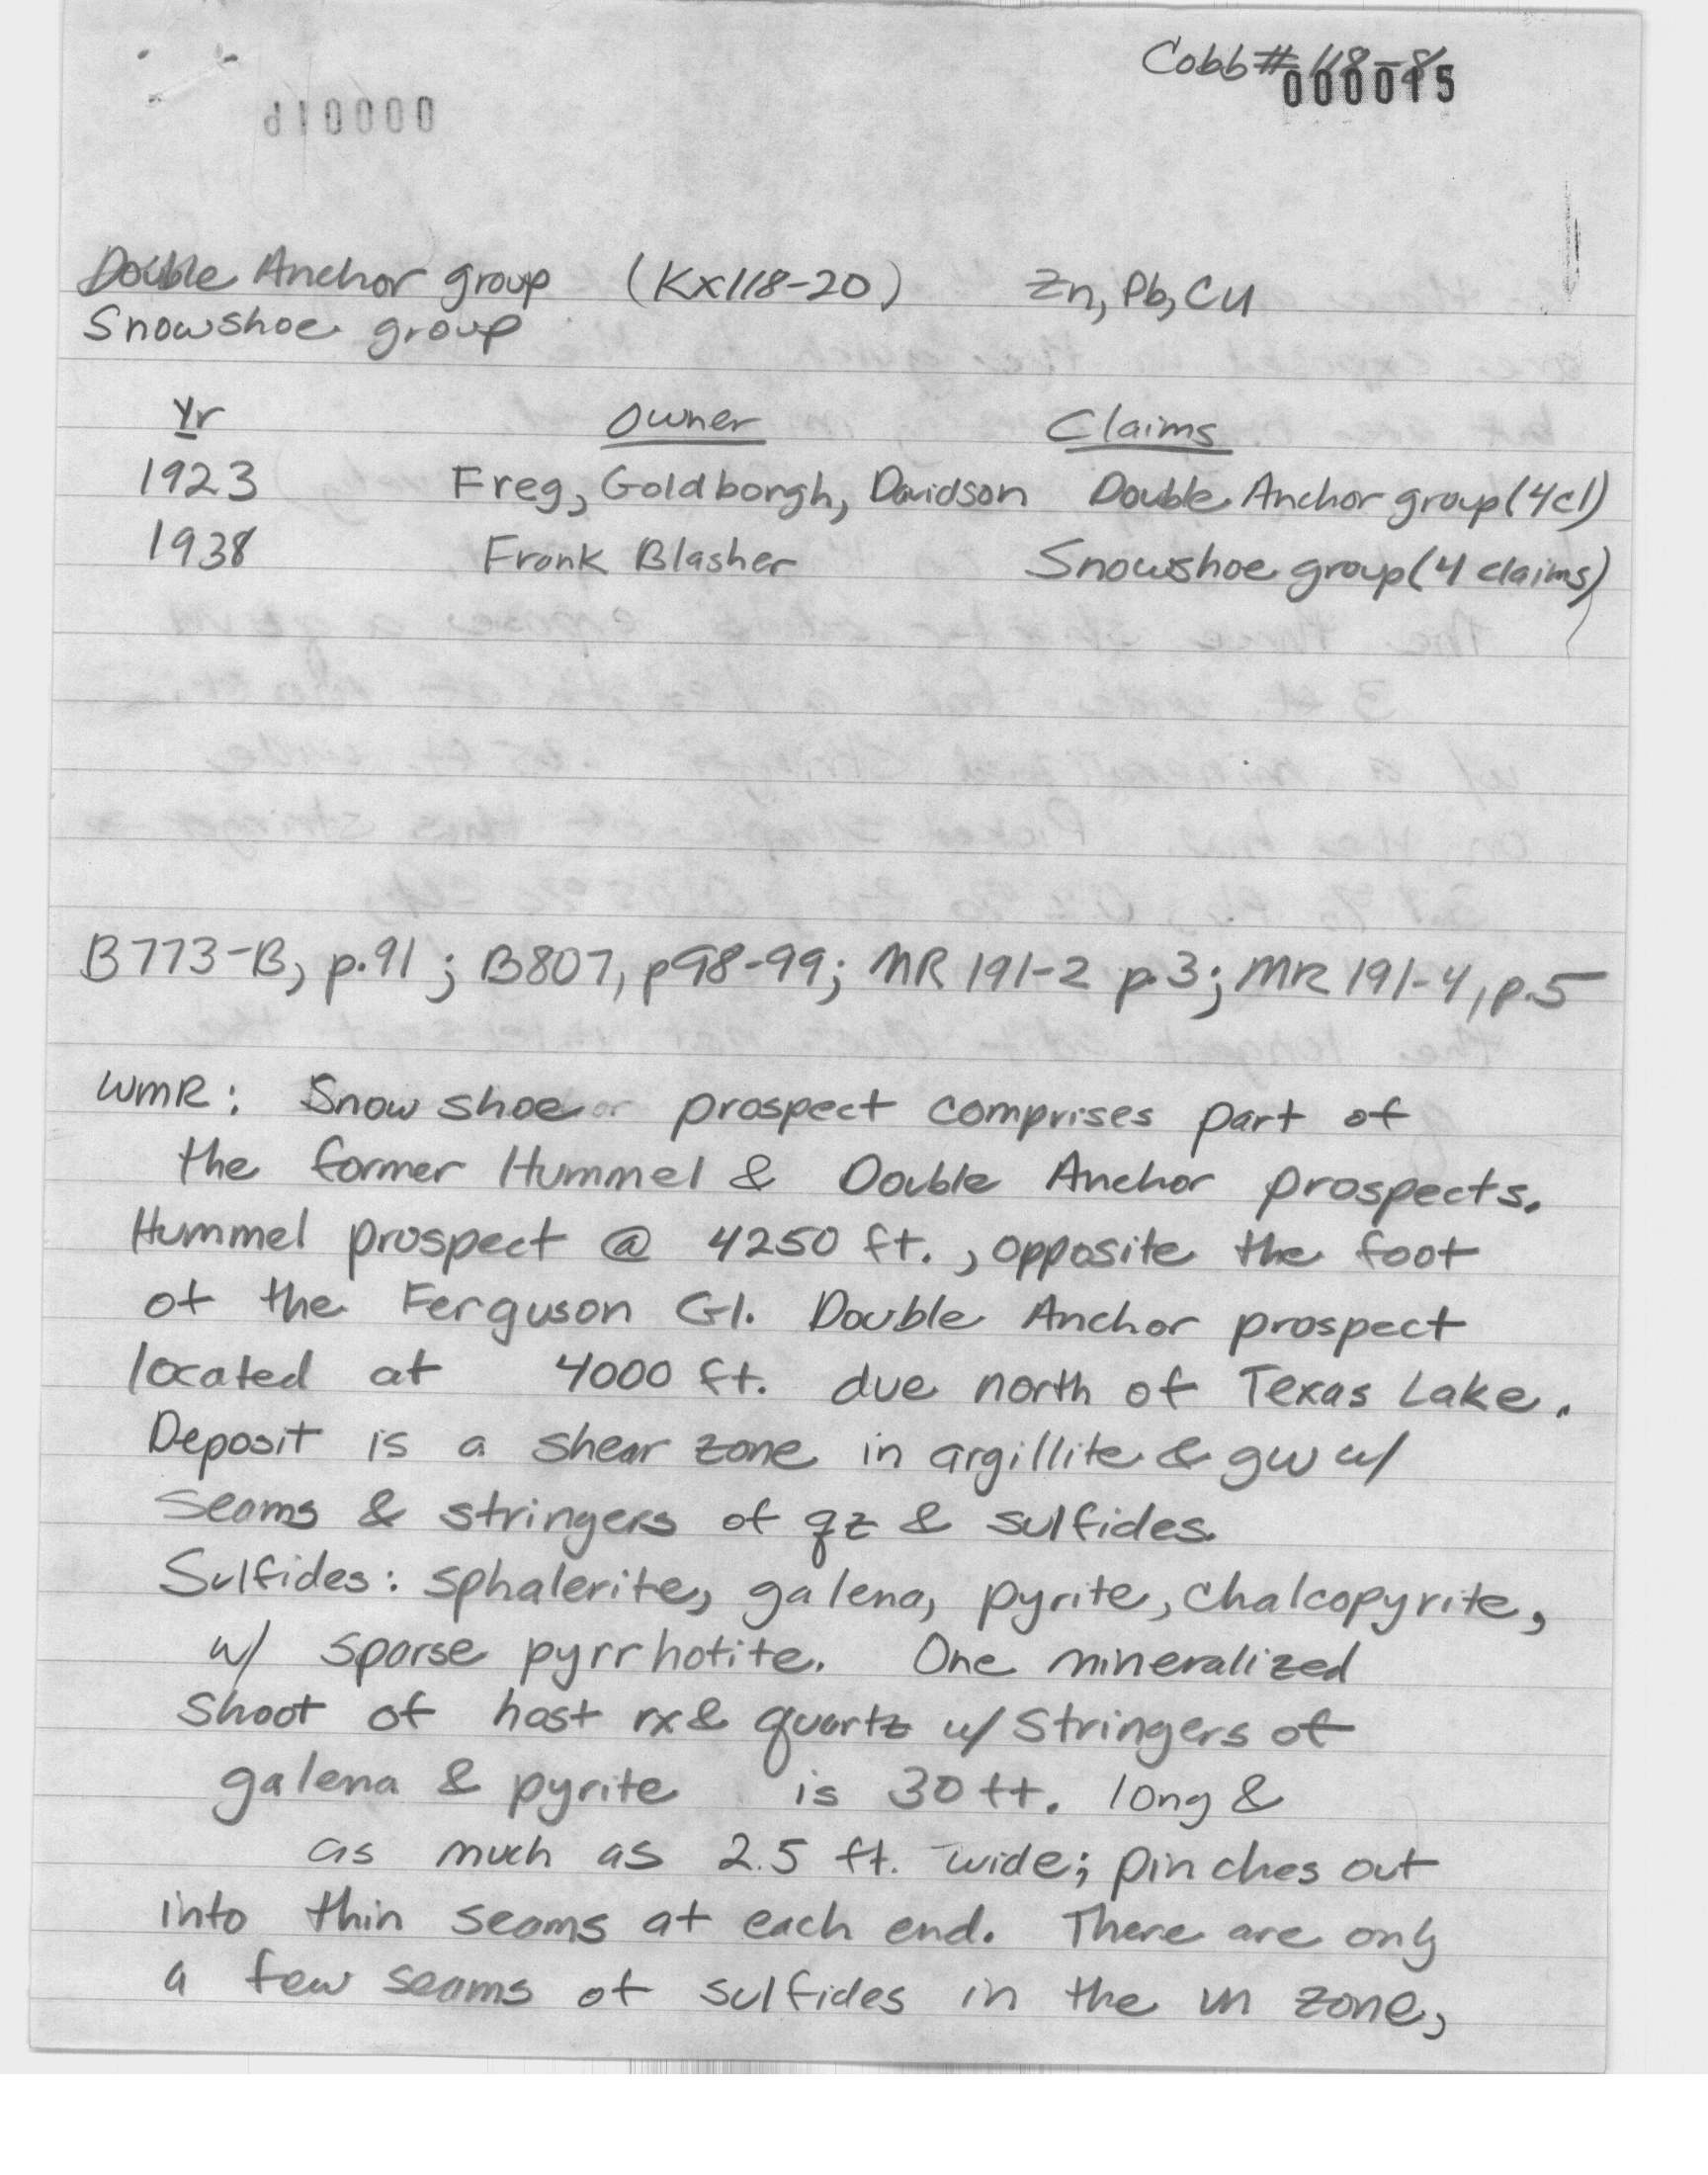 Cobb# 118-8
000015
Double Anchor group (Kx118-20) Zn, Pb, Cu
Snowshoe group
Yr Owner Claims
1923 Freg, Goldborgh, Davidson Double Anchor group (4cl)
1938 Frank Blasher Snowshoe group (4 claims)
B773-B, p.91; B807, p98-99; MR 191-2 p.3; MR 191-4, p.5
WMR: Snowshoe prospect comprises part of
the former Hummel & Double Anchor prospects.
Hummel prospect @ 4250 ft., opposite the foot
of the Ferguson Gl. Double Anchor prospect
located at 4000 ft. due north of Texas Lake.
Deposit is a shear zone in argillite & gw w/
seams & stringers of qz & sulfides.
Sulfides: sphalerite, galena, pyrite, chalcopyrite,
w/ sparse pyrrhotite. One mineralized
shoot of host rx & quartz w/ stringers of
galena & pyrite is 30 ft. long &
as much as 2.5 ft. wide; pinches out
into thin seams at each end. There are only
a few seams of sulfides in the vn zone,